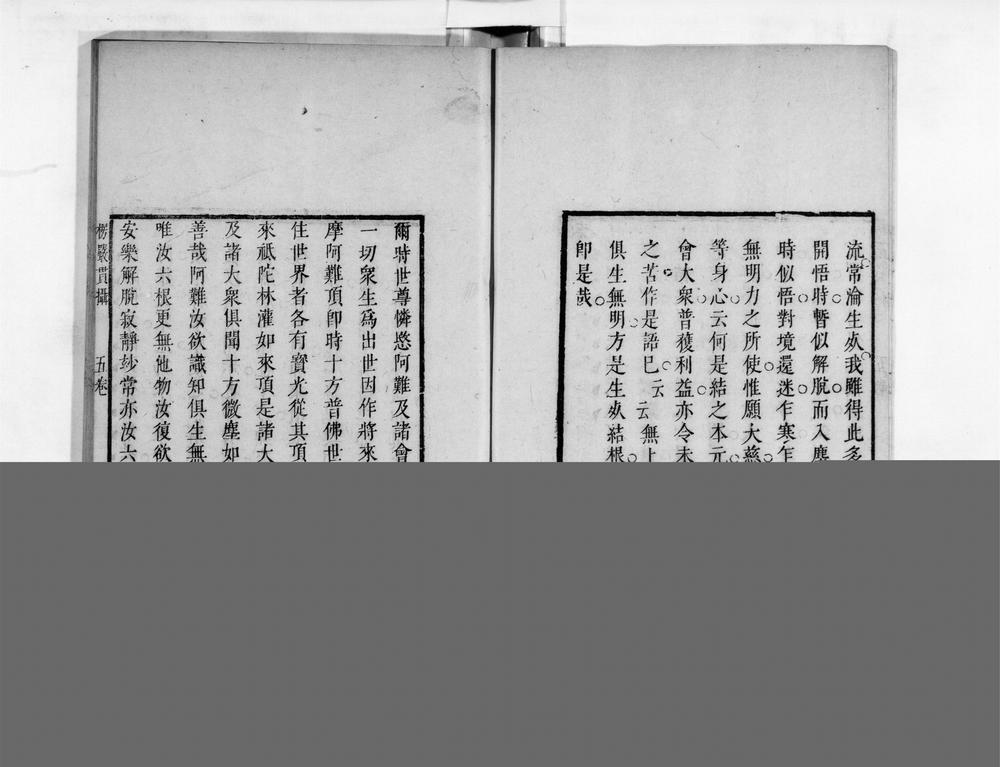 流常淪生死我雖得此多
開悟時暫似解脫而入塵
時似悟對境還迷乍寒乍
無明力之所使惟願大慈
等身心云何是結之本元
會大衆普獲利益亦令未
之苦作是語巳云云無上
俱生無明方是生死結根
卽是哉
爾時世尊憐愍阿難及諸會
一切衆生爲出世因作將來
摩阿難頂卽時十方普佛世
住世界者各有寶光從其頂
來祗陀林灌如來頂是諸大
及諸大衆俱聞十方微塵如
善哉阿難汝欲識知俱生無
唯汝六根更無他物汝復欲
安樂解脫寂靜妙常亦汝六
楞嚴貫攝 五卷